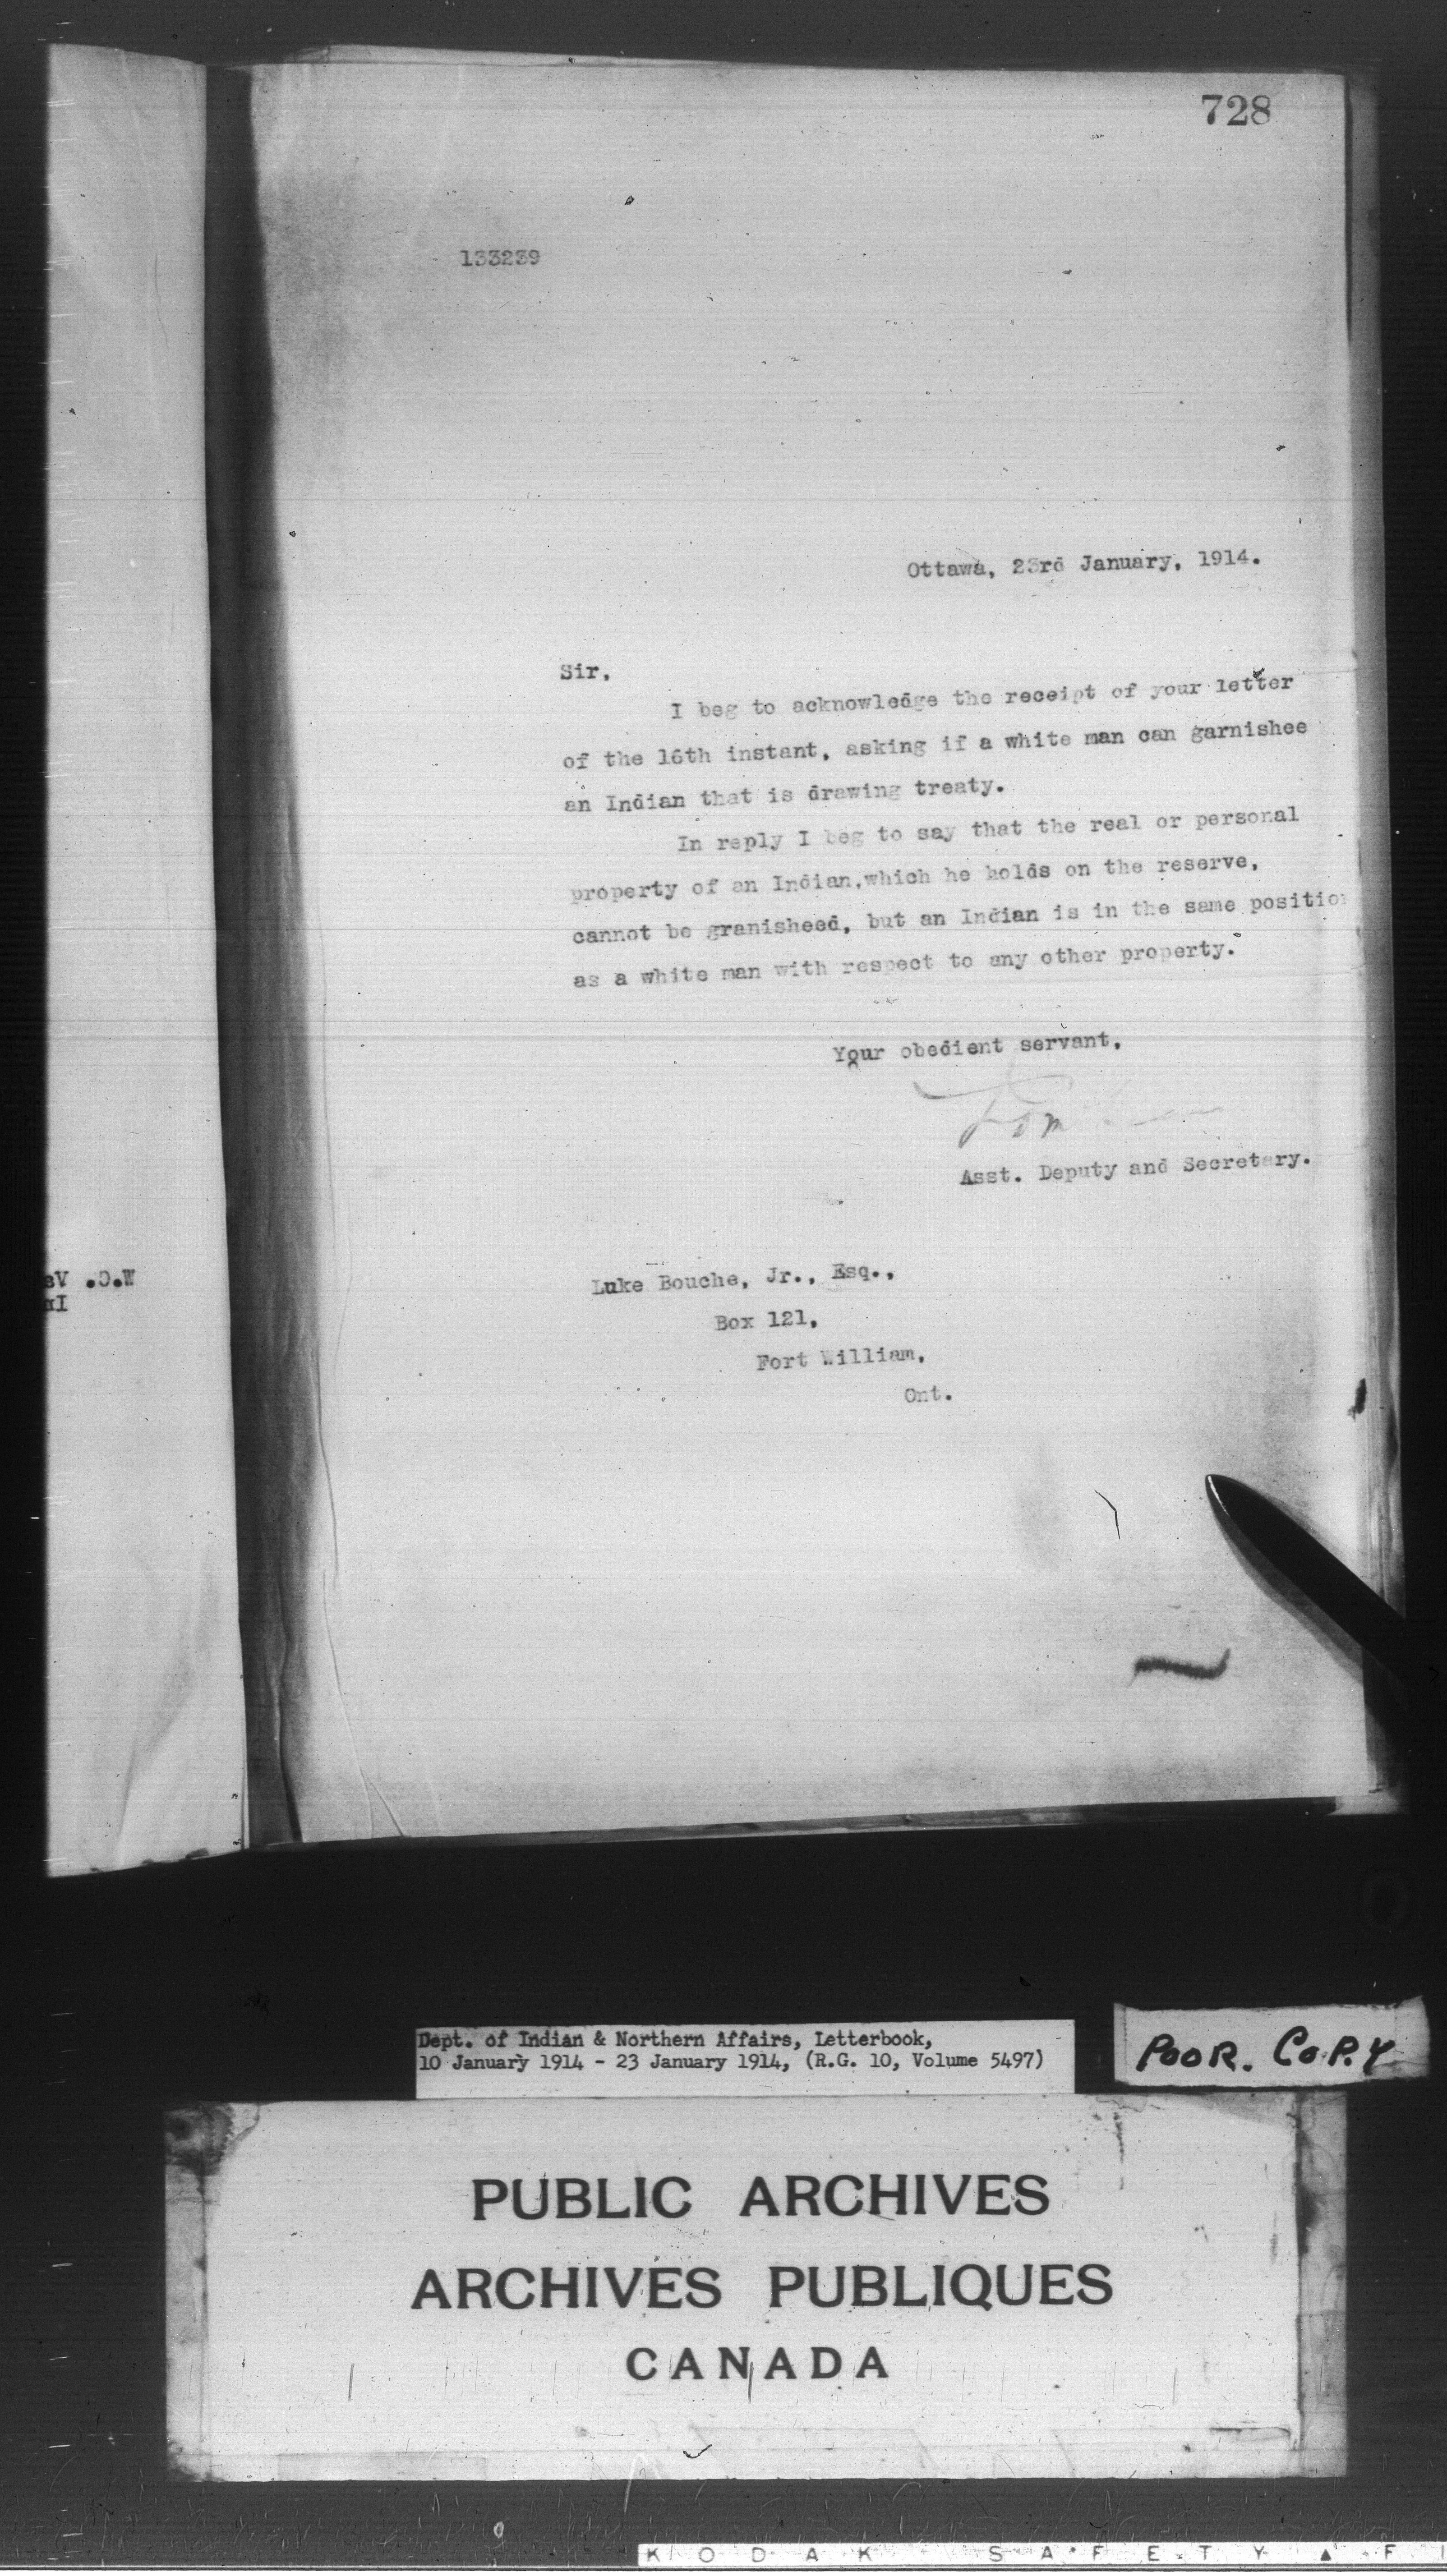 728
133239
Ottawa, 23rd January, 1914.
Sir,
I beg to acknowledge the receipt of your letter
of the 16th instant, asking if a white man can garnishee
an Indian that is drawing treaty.
In reply I beg to say that the real or personal
property of an Indian,which he holds on the reserve,
cannot be granisheed, but an Indian is in the same positio
as a white man with respect to any other property.
Your obedient servant,
Asst. Deputy and Secretary.
Luke Bouche, Jr., Esq.,
Box 121,
Fort William,
Ont.
Dept. of Indian & Northern Affairs, Letterbook,
10 January 1914 - 23 January 1914, (R.G. 10, Volume 5497)
POOR. COPY
PUBLIC ARCHIVES
ARCHIVES PUBLIQUES
CANADA
KODAK SAFETY ▲ F